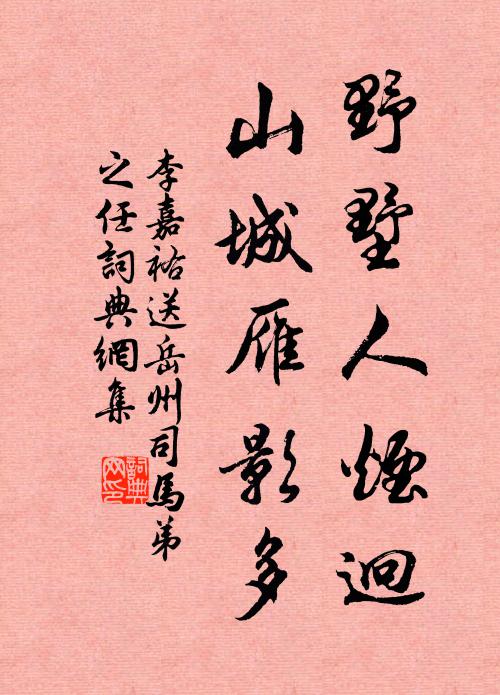 野墅人煙迥
山城雁影多
李嘉祐送岳州司馬弟
之任詞典網集
詞典網印